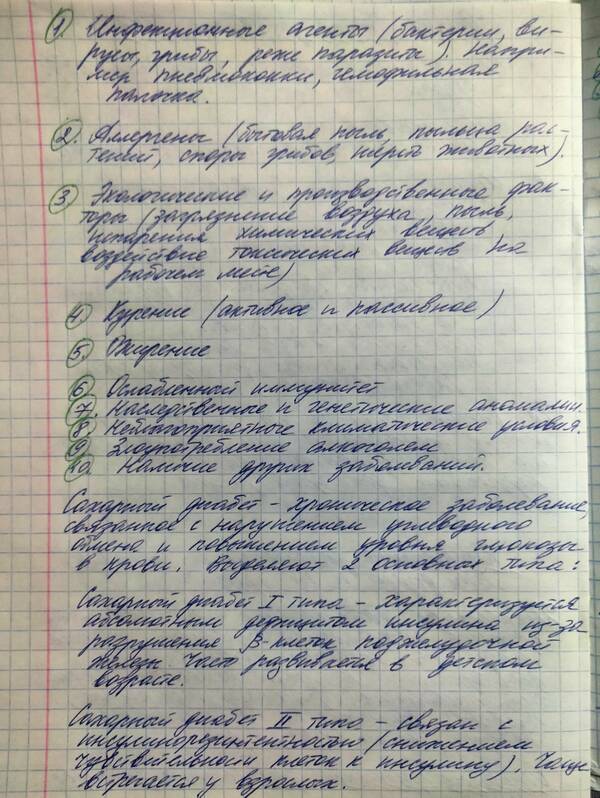 1. Инфекционные агенты (бактерии, ви-
русы, грибы, реже паразиты). Напри-
мер пневмококки, гемофильная
палочка.
2. Аллергены (бытовая пыль, пыльца рас-
тений, споры грибов, шерсть животных).
3. Экологические и производственные фак-
торы (загрязнение воздуха, пыль,
испарения химических веществ
воздействие токсических веществ на
рабочем месте)
4. Курение (активное и пассивное)
5. Ожирение
6. Ослабленный иммунитет
7. Наследственные и генетические аномалии.
8. Неблагоприятные климатические условия.
9. Злоупотребление алкоголем
10. Наличие других заболеваний.
Сахарный диабет - хроническое заболевание,
связанное с нарушением углеводного
обмена и повышением уровня глюкозы
в крови. Выделяют 2 основных типа:
Сахарный диабет I типа - характеризуется
абсолютным дефицитом инсулина из-за
разрушения β-клеток поджелудочной
железы. Часто развивается в детском
возрасте.
Сахарный диабет II типа - связан с
инсулинорезистентностью (снижением
чувствительности клеток к инсулину). Чаще
встречается у взрослых.